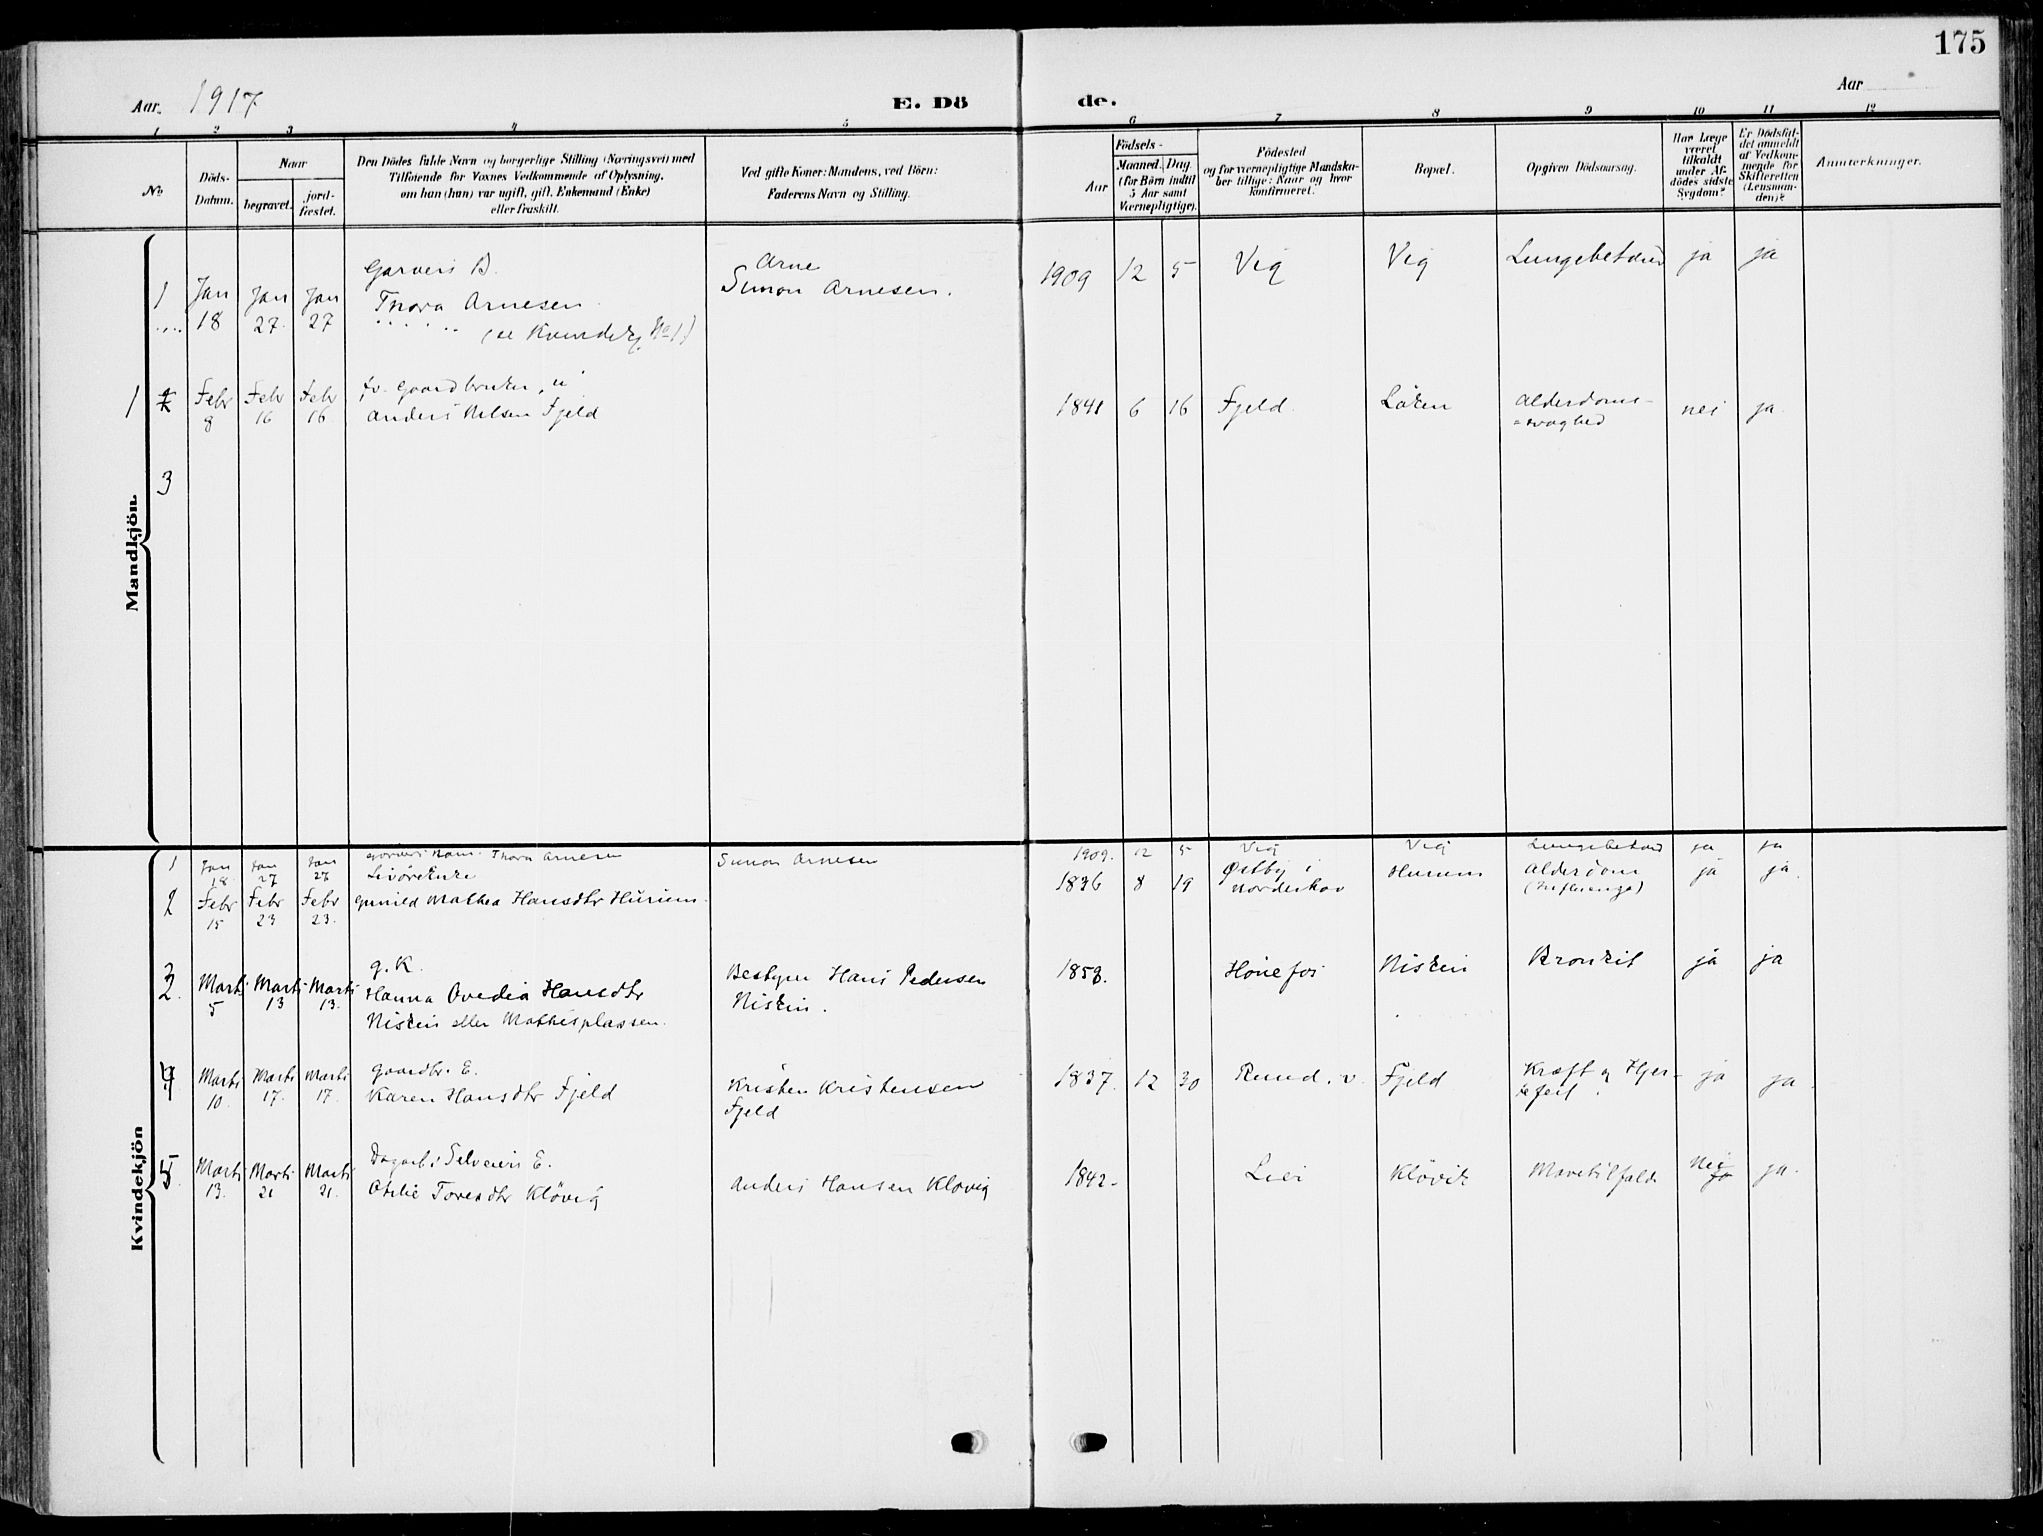 175
Aar. 1917
E. Dö
de.
Aar
1 2 3 4 5 6 7 8 9 10 11 12
No
Döds-
Datum.
Naar
begravet.
jord-
fæstet.
Den Dödes fulde Navn og borgerlige Stilling (Næringsvei) med
Tilföiende for Voxnes Vedkommende af Oplysning,
om han (hun) var ugift, gift, Enkemand (Enke)
eller fraskilt.
Ved gifte Koner: Mandens, ved Börn:
Faderens Navn og Stilling.
Födsels-
Aar
Maaned. Dag.
(for Börn indtil
5 Aar samt
Værnepligtige).
Födested
og for værnepligtige Mandska-
ber tillige: Naar og hvor
konfirmeret.
Bopæl.
Opgiven Dödsaarsag.
Har Læge
været
tilkaldt
under Af-
dödes sidste
Sygdom?
Er Dödsfal-
det anmeldt
af Vedkom-
mende for
Skifteretten
(Lensman-
den)?
Anmerkninger.
Mandkjön.
1 Jan 18 Jan 27 Jan 27
Garveri B.
Thora Arnesen
(se Kvindekj. No 1)
Arne
Simon Arnesen.
1909 12 5 Vig Vig Lungebetænd ja ja
1 Febr 8 Febr 16 Febr 16
fv. gaardbruker, u
Anders Nilsen Fjeld
1841 6 16 Fjeld Löken Alderdoms-
=svaghed
nei ja.
3
Kvindekjön
1 Jan 18 Jan 27 Jan 27 Thora Arnesen Simon Arnesen 1909. 12 5 Vig Vig Lungebetænd ja ja
2 Febr 15 Febr 23 Febr 23.
Gunild Mathea Hansdtr Hurum.
1836 8 19 Østby i
Norderhov
Hurum
Alderdom
(Influenza)
ja ja.
3 Marts 5 Marts 13 Marts 13.
g. K.
Hanna Ovedia Hansdtr
Niskin eller Mathisplassen.
Bestyrer Hans Pedersen
Niskin.
Hönefos Niskin Bronkit ja ja
4 Marts 10. Marts 17. Marts 17.
gaardbr. E.
Karen Hansdtr Fjeld
Kristen Kristensen
Fjeld
1837. 12 30 Rund. v. Fjeld
Kræft og Hjer-
tefeil.
ja ja.
5 Marts 13. Marts 21 Marts 21.
Dagarb. Selveiers E.
Otilie Toresdtr Klövig
Anders Hansen Klövig
1842- Lier Klövik Mavetilfælde
Nei
ja
ja.